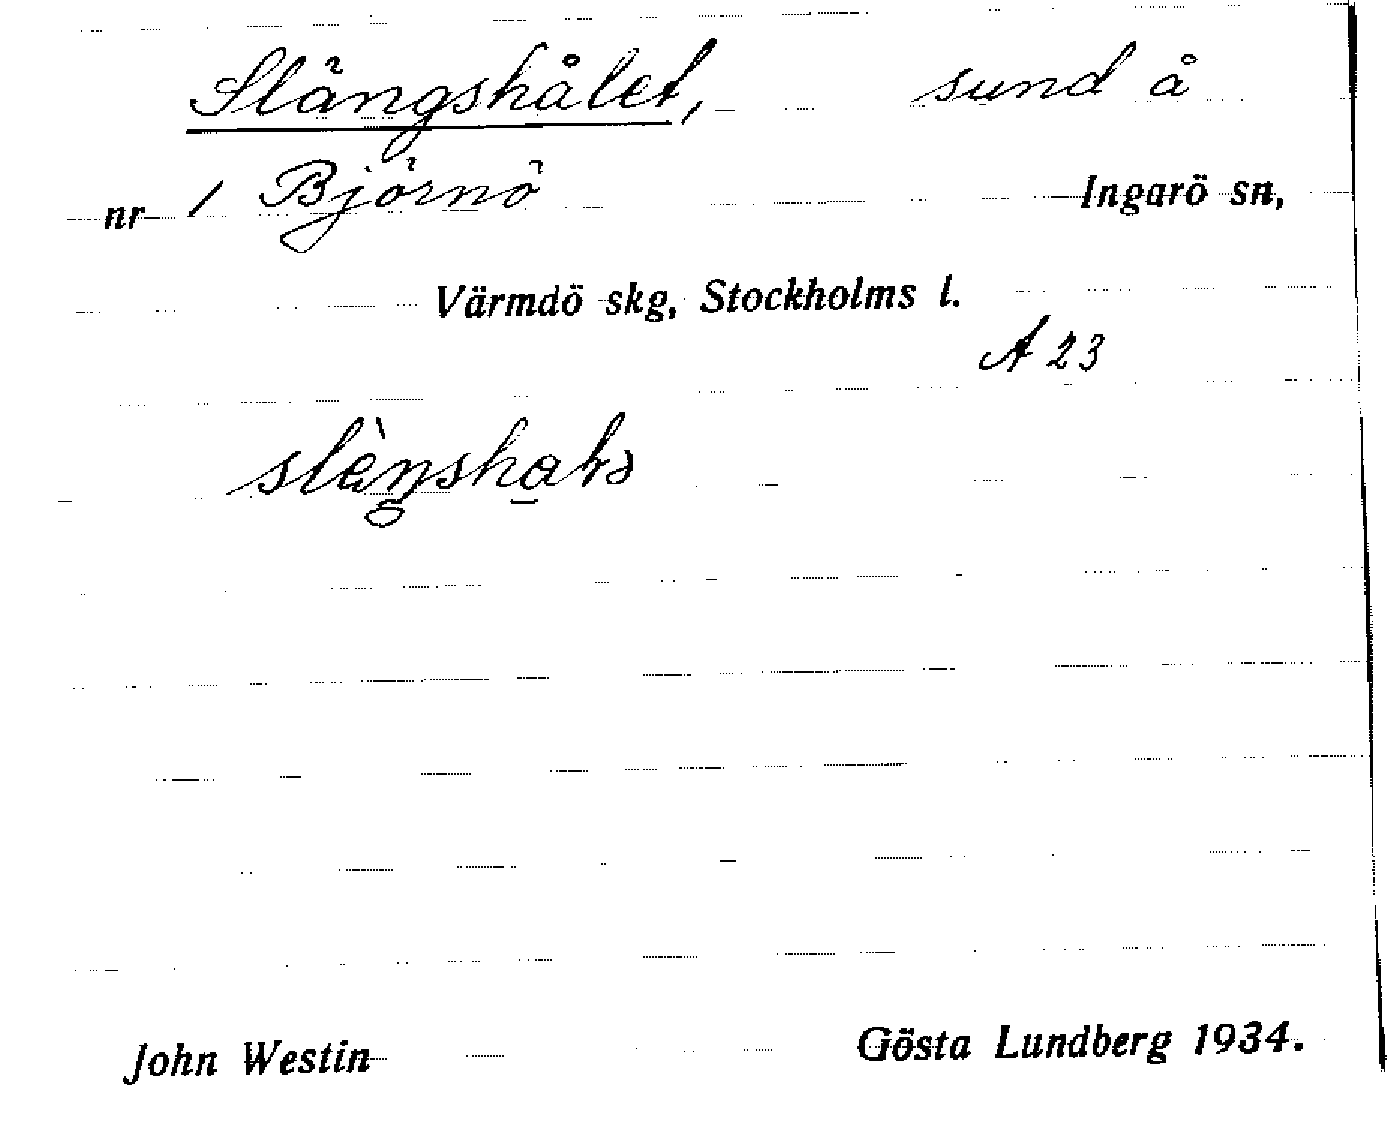 Slängshålet, sund å
nr 1 Björnö Ingarö sn,
Värmdö skg, Stockholms l.
A 23
John Westin Gösta Lundberg 1934.